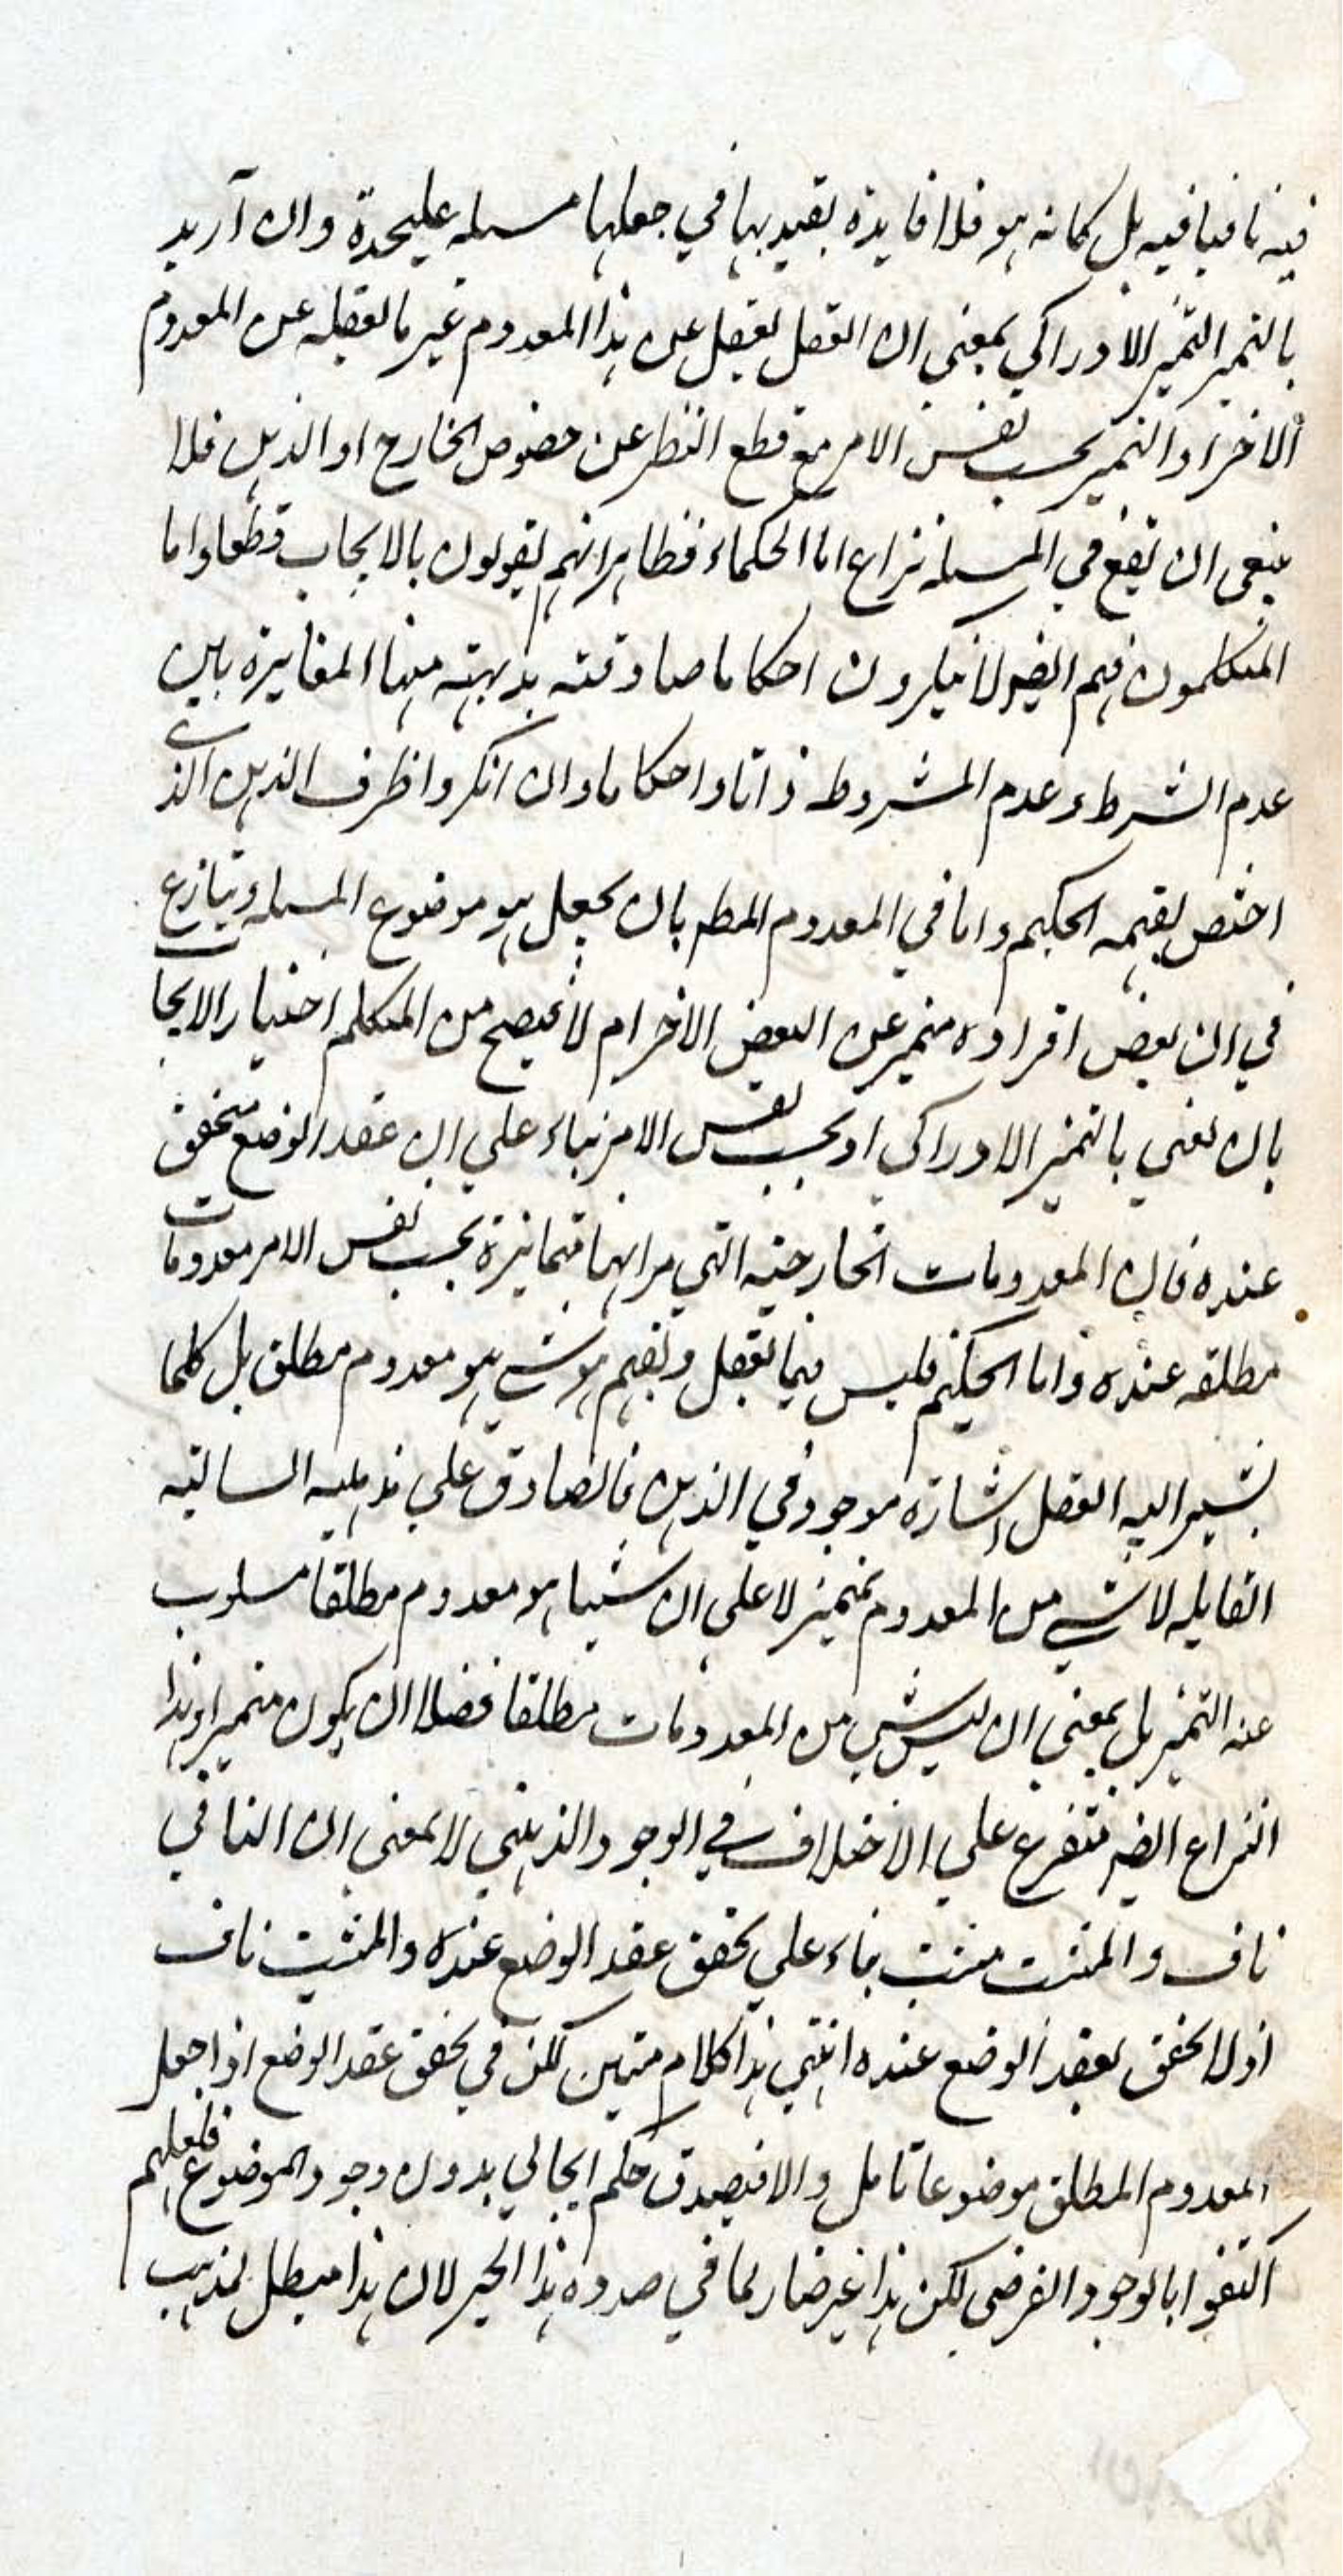 فيه نافيا فيه بل كانه هو فلا فايدة يعتد بها في جعلها مسئله عليحدة وان اريد
بالتميز التميز الادراكي بمعنى ان العقل يعقل عن هذا المعدوم غير ما يعقله عن المعدوم
الاخر او التميز بحسب نفس الامر مع قطع النظر عن خصوص الخارج او الذهن فلا
ينبغي ان يقع في المسئله نزاع اما الحكماء فظاهر انهم يقولون بالايجاب قطعا واما
المتكلمون فهم ايضا لا ينكرون احكاما صادقته بديهته منها المغايرة بين
عدم الشرط وعدم المشروط ذاتا واحكاما وان انكروا ظرف الذهن الذي
اختص بفهمه الحكيم واما في المعدوم المطم بان يجعل هو موضوع المسئله وتنازع
في ان بعض افراده متميز عن البعض الاخر ام لا فيصح من المتكلم اختيار الايجاب
بان يعني بالتميز الادراكي او بحسب نفس الامر بناء على ان عقد الوضع متحقق
عنده فان المعدومات الخارجيه التي مر انها متمايزة بحسب نفس الامر معدومات
مطلقه عنده واما الحكيم فليس فيما يعقل ويفهم شي هو معدوم مطلق بل كلما
يشير اليه العقل اشارة موجود في الذهن فالصادق على مذهبه السالبته
القايله لا شي من المعدوم بمتميز لا على ان شيئا هو معدوم مطلقا مسلوب
عنه التميز بل بمعنى ان ليس شي من المعدومات مطلقا فضلا ان يكون متميزا وهذا
النزاع ايضا متفرع على الاختلاف في الوجود الذهني لا بمعنى ان النافي
ناف والمثبت مثبت بناء على تحقق عقد الوضع عنده والمثبت ناف
اذ لا تحقق لعقد الوضع عنده انتهى هذا كلام متين لكن في تحقق عقد الوضع اذا جعل
المعدوم المطلق موضوعا تامل والا فيصدق حكم ايجابي بدون وجود الموضوع فلعلهم
اكتفوا بالوجود الفرضي لكن هذا غير ضار لما في صدده هذا الحبر لان هذا مبطل لمذهب